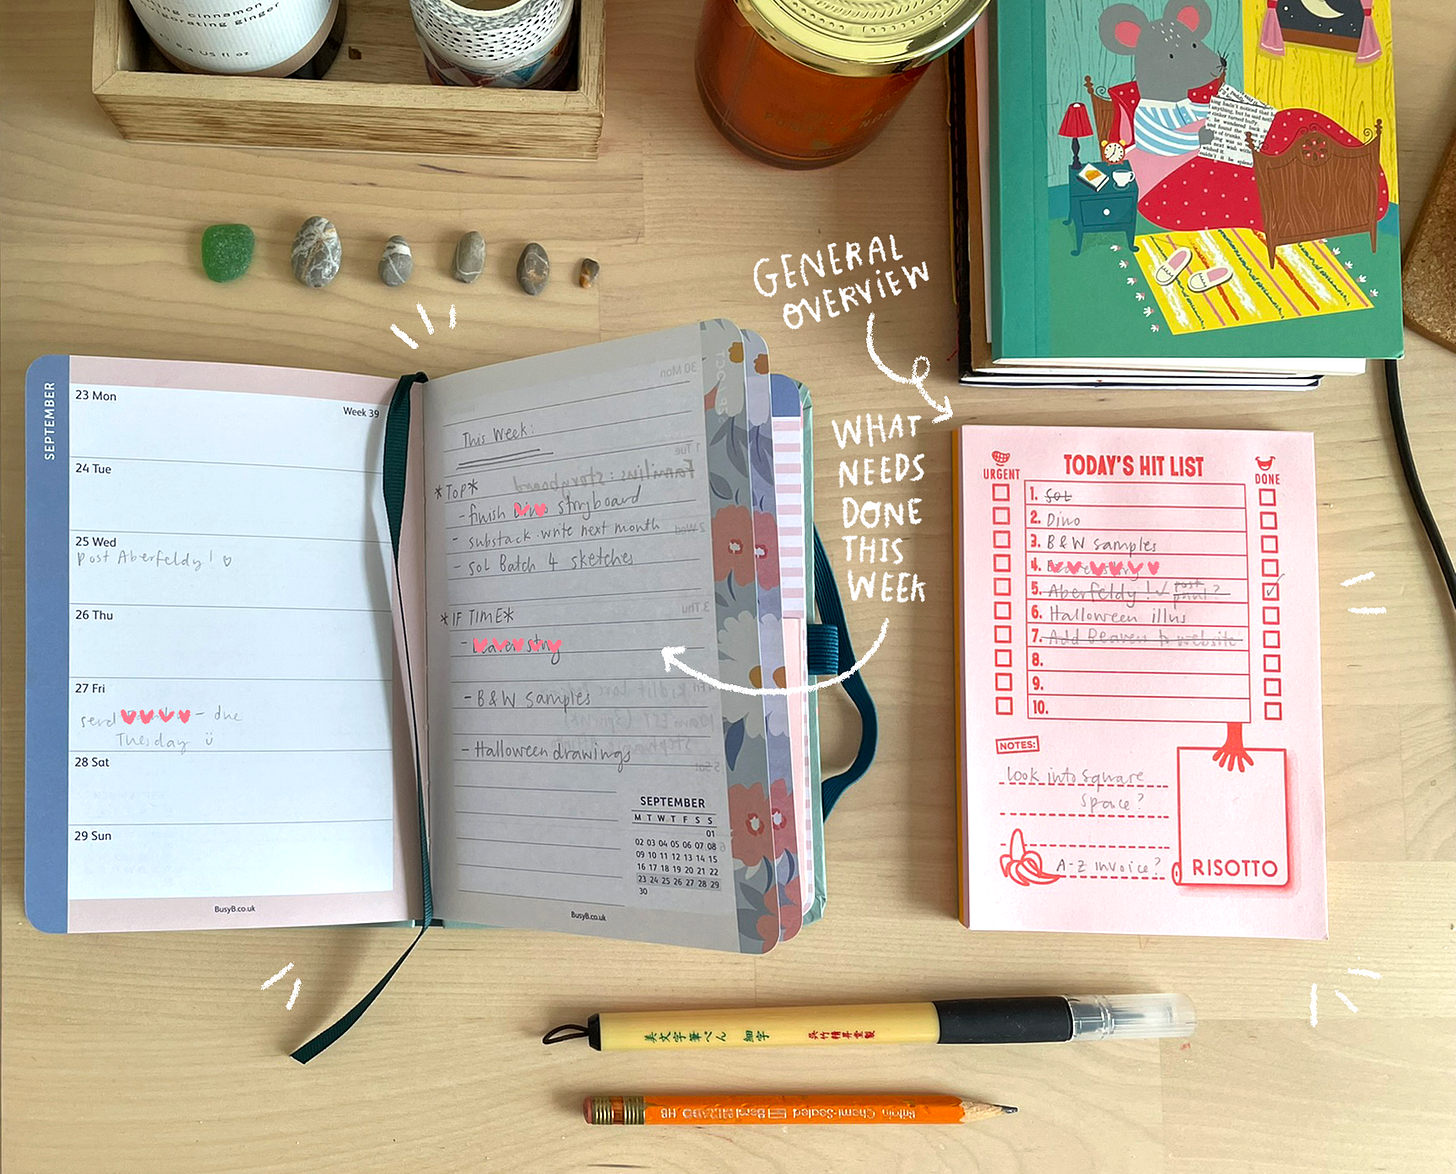 cinnamon
ginger
fl oz
GENERAL
OVERVIEW
WHAT
NEEDS
DONE
THIS
WEEK
SEPTEMBER
23 Mon
Week 39
24 Tue
25 Wed
Post Aberfeldy!
26 Thu
27 Fri
send - due
Tuesday ü
28 Sat
29 Sun
BusyB.co.uk
This Week:
*TOP*
- finish storyboard
- substack - write next month
- Sol Batch 4 sketches
*IF TIME*
-
- B&W samples
- Halloween drawings
SEPTEMBER
M T W T F S S
01
02 03 04 05 06 07 08
09 10 11 12 13 14 15
16 17 18 19 20 21 22
23 24 25 26 27 28 29
30
BusyB.co.uk
URGENT
TODAY'S HIT LIST
DONE
1. Sol
2. Dino
3. B&W samples
4.
5. Aberfeldy! ✓ post print?
6. Halloween illus
7. Add Beavers to website
8.
9.
10.
NOTES:
look into square
space?
A-Z invoice?
RISOTTO
美文字筆ぺん 細字 呉竹精昇堂製
Chemi-Sealed Berol HB